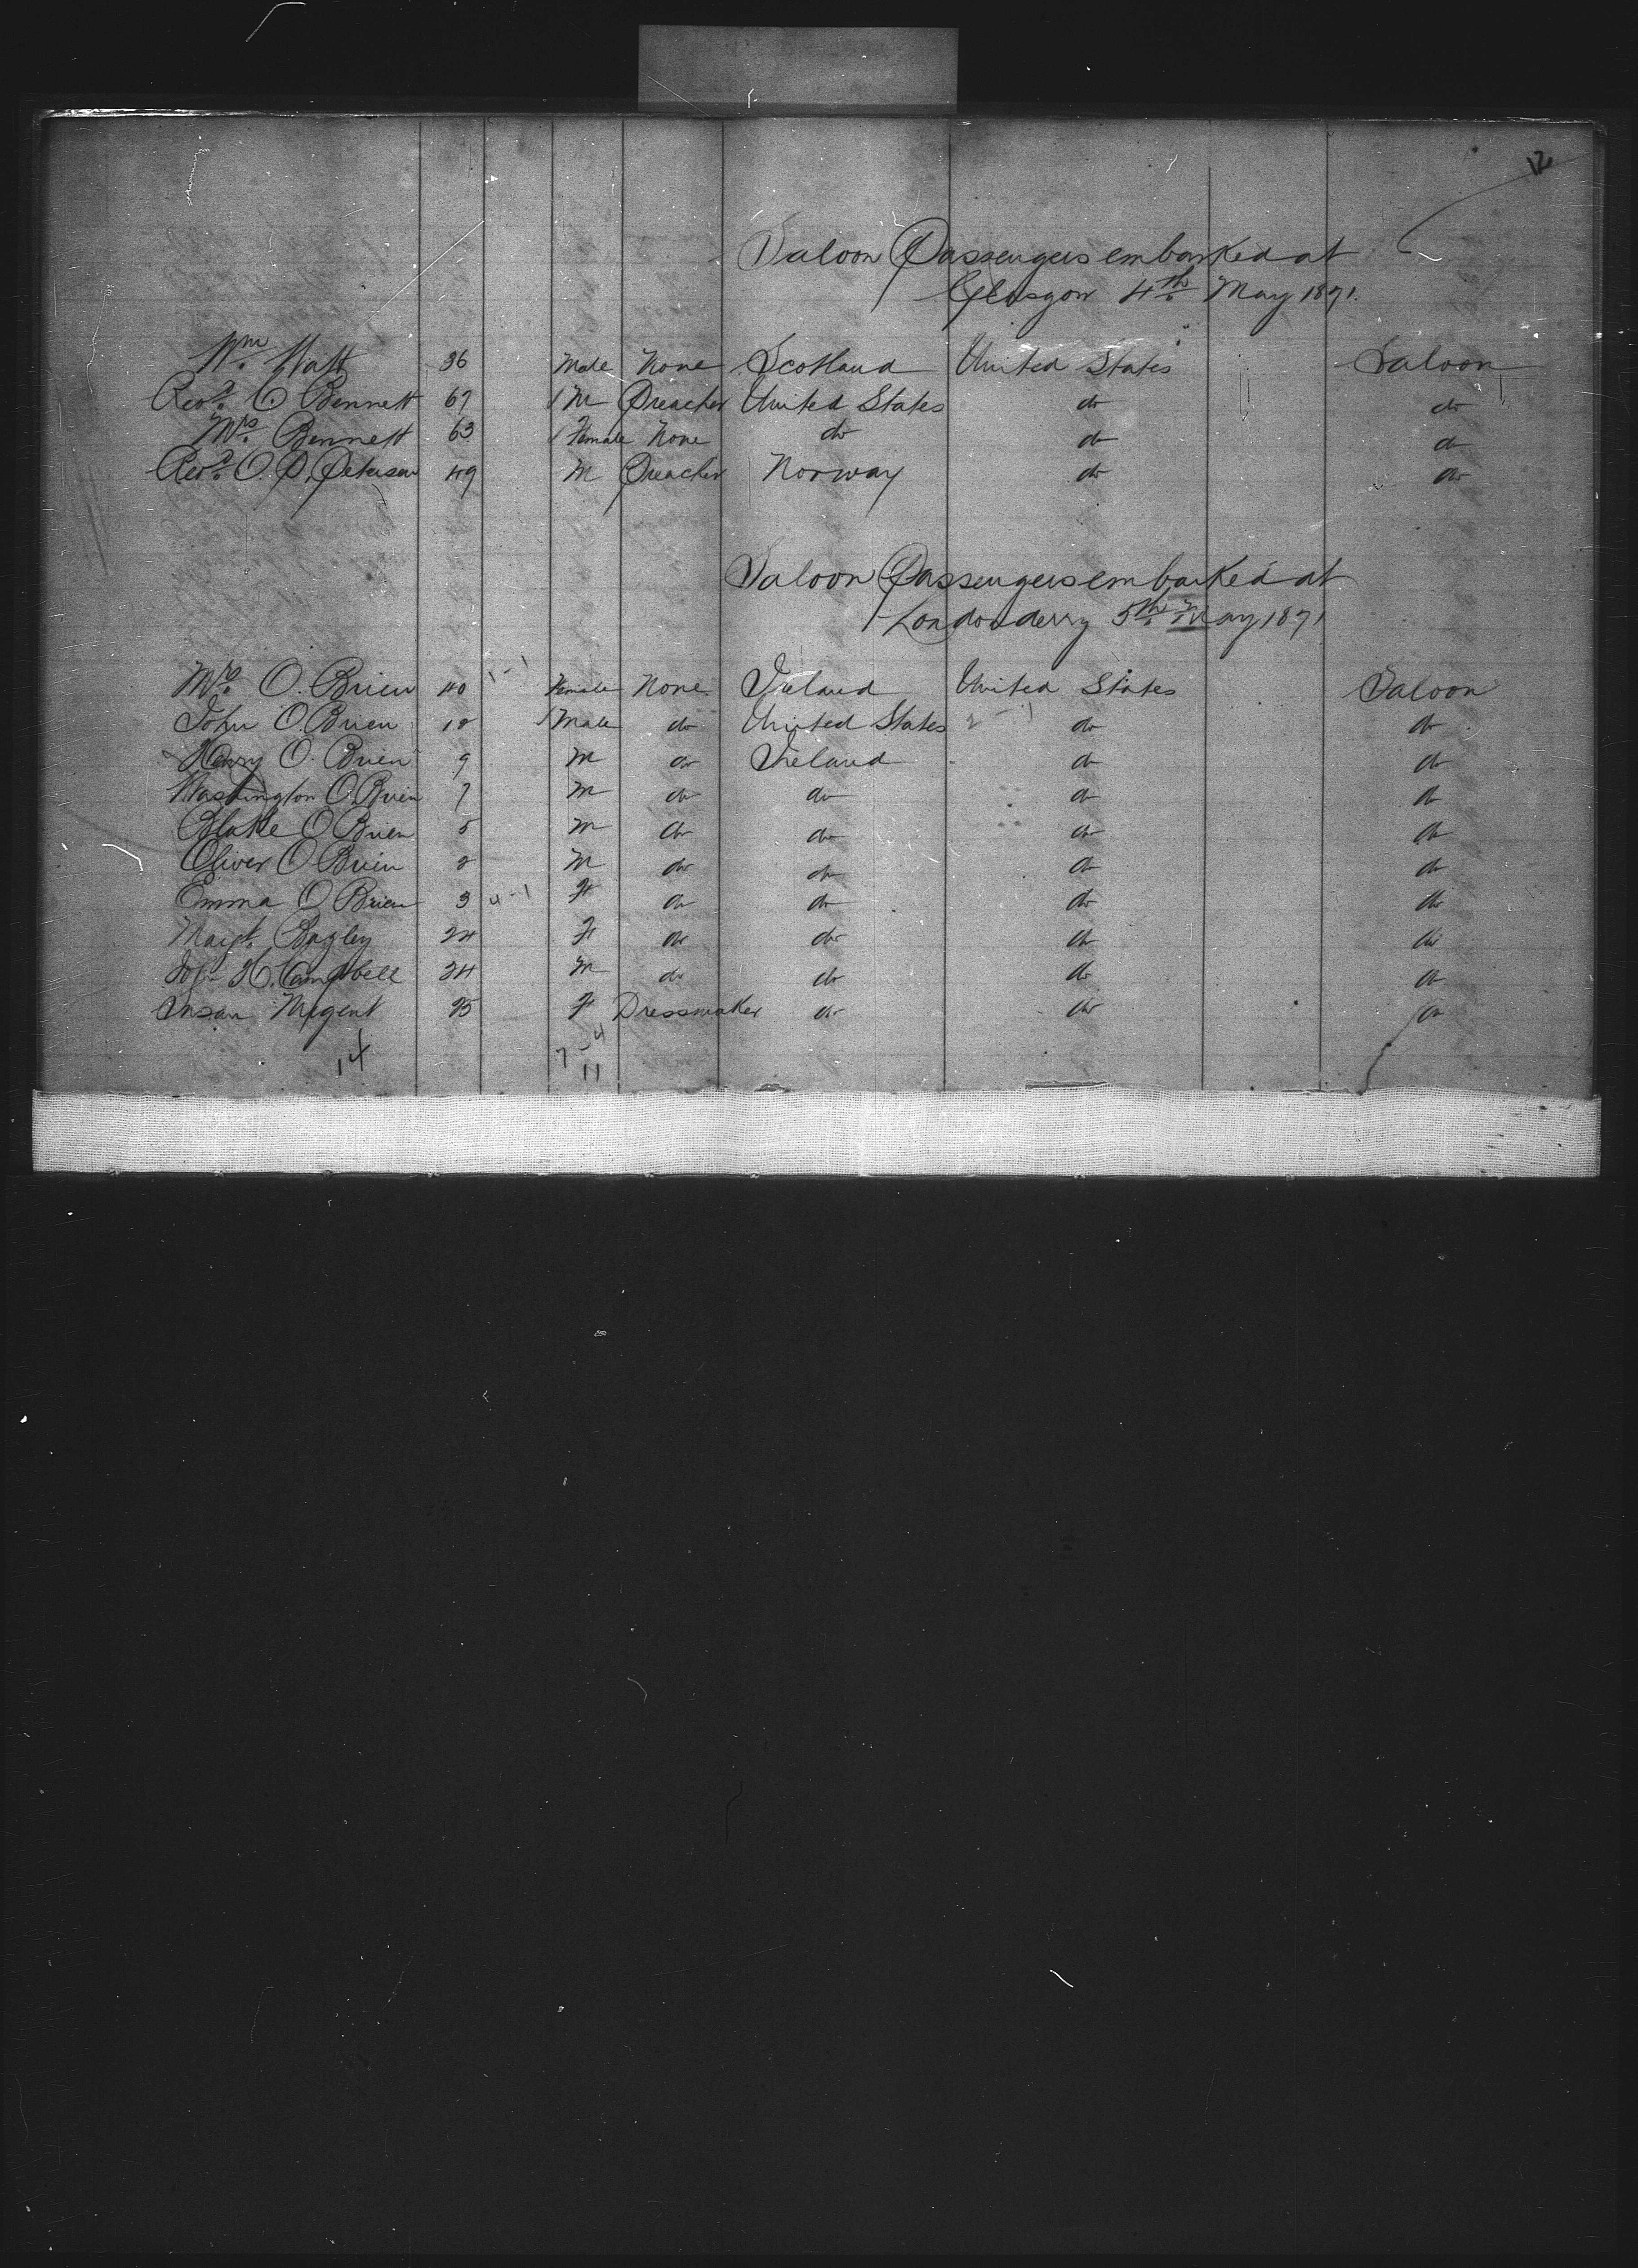 12
Saloon Passengers embarked at
Glasgow 4th May 1871.
Wm. Watt 36 Male None Scotland United States Saloon
Revd. C Bennett 67 1 M Preacher United States do do
Mrs. Bennett 63 1 Female None do do do
Revd. O. P. Petersen 49 M Preacher Norway do do
Saloon Passengers embarked at
Londonderry 5th May 1871
Mrs. O. Brien 40 1-1 Female None Ireland United States Saloon
John O. Brien 12 1 Male do United States 2-1 do do
Henry O. Brien 9 M do Ireland do do
Washington O. Brien 7 M do do do do
Blake O Brien 5 M do do do do
Oliver O Brien 2 M do do do do
Emma O Brien 3 4-1 F do do do do
Margt. Bagley 24 F do do do do
John H. Campbell 24 M do do do do
Susan Nugent 25 F Dressmaker do do do
14 7-4
11